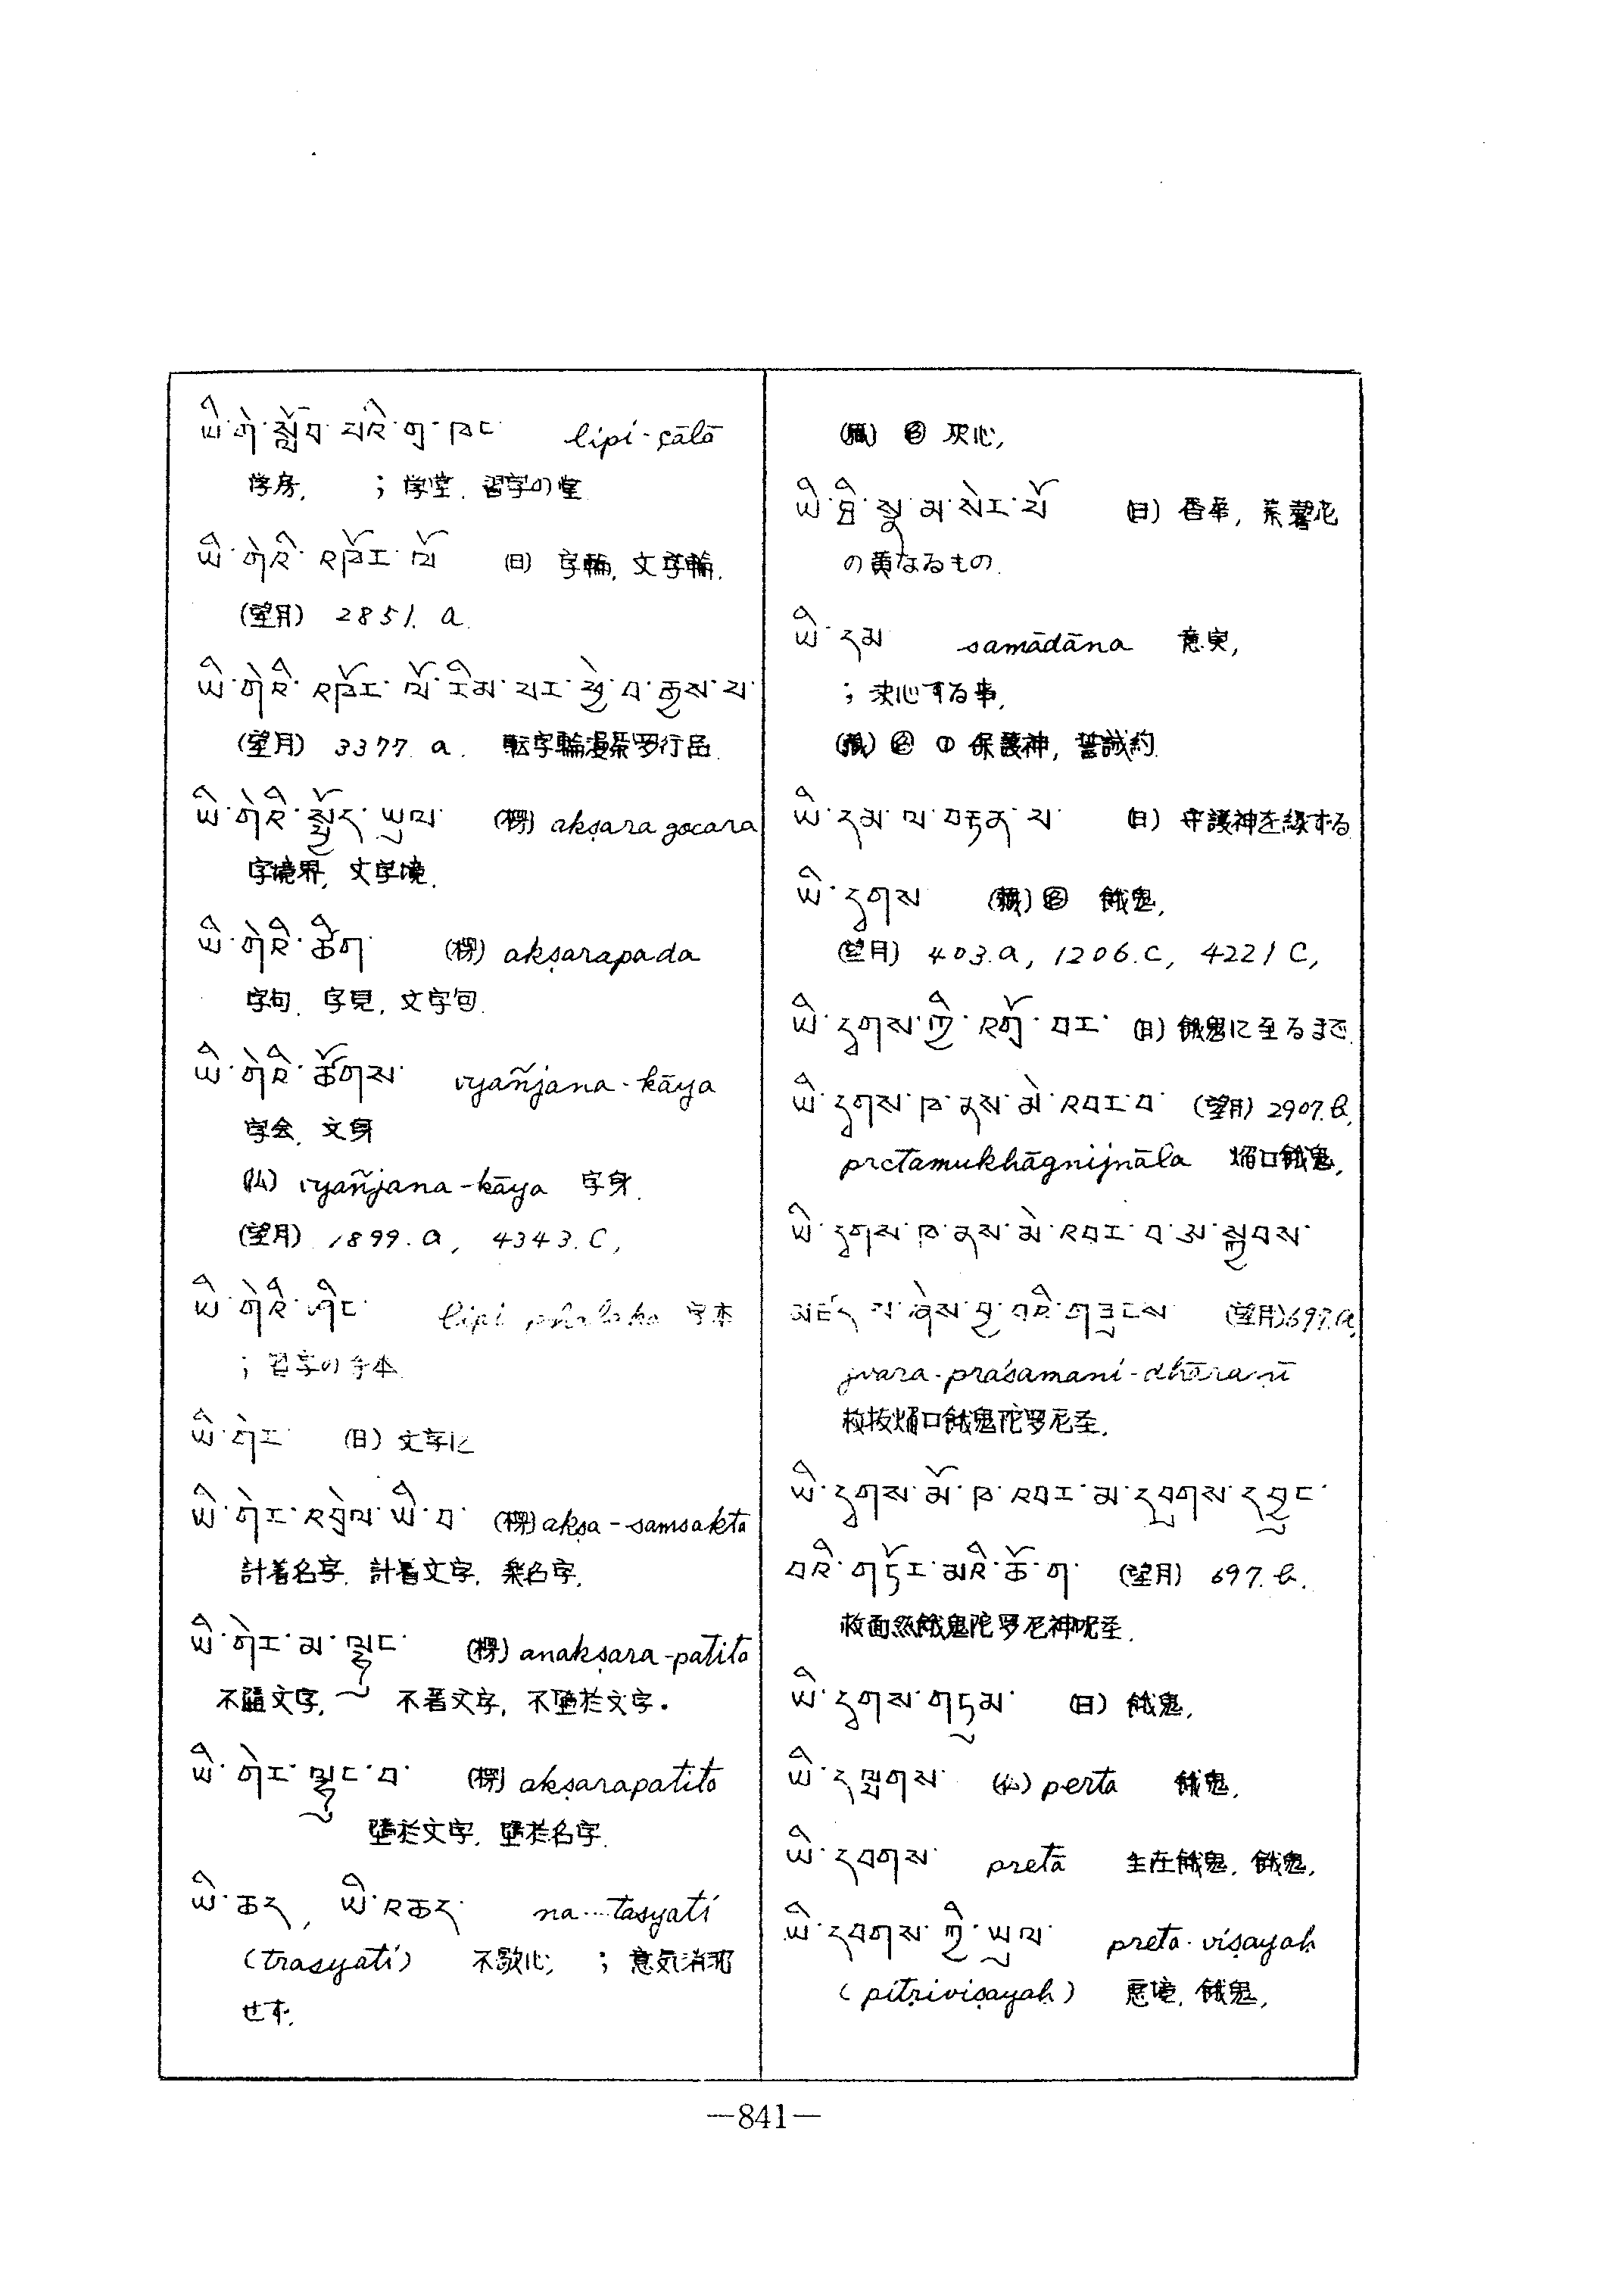 ཡི་གེ་སློབ་པའི་གྲྭ་ཁང་ lipi-çālā
学房, ; 学堂, 習字の堂
ཡི་གེའི་འཁོར་ལོ (日) 字輪, 文字輪.
(望月) 2851. a.
ཡི་གེའི་འཁོར་ལོ་རིམ་པར་ཕྱེ་བ་རྒྱས་པ་
(望月) 3377. a. 転字輪漫荼罗行品.
ཡི་གེའི་སྤྱོད་ཡུལ་ (楞) akṣara gocara
字境界, 文字境.
ཡི་གེའི་ཚིག་ (楞) akṣarapada
字句, 字見, 文字句.
ཡི་གེའི་ཚོགས་ vyañjana-kāya
字会, 文身
(仏) vyañjana-kāya 字身.
(望月) 1899. a, 4343. C,
ཡི་གེའི་ཤིང་ lipi phalaka 字本
; 習字の手本
ཡི་གེར་ (日) 文字に
ཡི་གེར་འབྲེལ་ཡི་བ་ (楞) akṣa-samsakta
計着名字, 計着文字, 楽名字,
ཡི་གེར་མ་ལྟུང་ (楞) anakṣara-patita
不随文字, 不着文字, 不堕於文字.
ཡི་གེར་ལྟུང་བ་ (楞) akṣarapatita
堕於文字, 堕於名字.
ཡི་ཆད, ཡི་འཆད་ na....tasyati
(trasyati) 不歇心, ; 意気消沈
せず.
(蔵) 図 決心,
(日) 香華, 素馨花
の黄なるもの.
ཡི་དམ samādāna 意実,
; 決心する事,
(蔵) 図 ① 保護神, 誓誡約.
ཡི་དམ་ལ་བརྟན་པ་ (日) 守護神を縁する
ཡི་དྭགས (蔵) 図 餓鬼,
(望月) 403.a, 1206.C, 4221 C,
ཡི་དྭགས་ཀྱི་འགྲོ་བར་ (日) 餓鬼に至るまで.
ཡི་དྭགས་ཁ་ནས་མེ་འབར་བ་ (望月) 2907. b,
pretamukhāgnijnāla 焔口餓鬼,
ཡི་དྭགས་ཁ་ནས་མེ་འབར་བ་ལ་སྐྱབས་
མཛད་པ་ཞེས་བྱ་བའི་གཟུངས་ (望月) 697. a,
jvara-praśamani-dhāraṇī
救抜焔口餓鬼陀罗尼圣.
ཡི་དྭགས་མོ་ཁ་འབར་མ་དབུགས་དབྱུང་
བའི་གཏོར་མའི་ཆོ་ག་ (望月) 697. b.
救面然餓鬼陀罗尼神呪圣.
ཡི་དྭགས་གདུམ་ (日) 餓鬼,
(仏) perta 餓鬼,
ཡི་དབགས་ pretā 生在餓鬼, 餓鬼,
ཡི་དབགས་ཀྱི་ཡུལ་ preta-viṣayaḥ
(pitṛiviṣayaḥ) 悪境, 餓鬼,
—841—